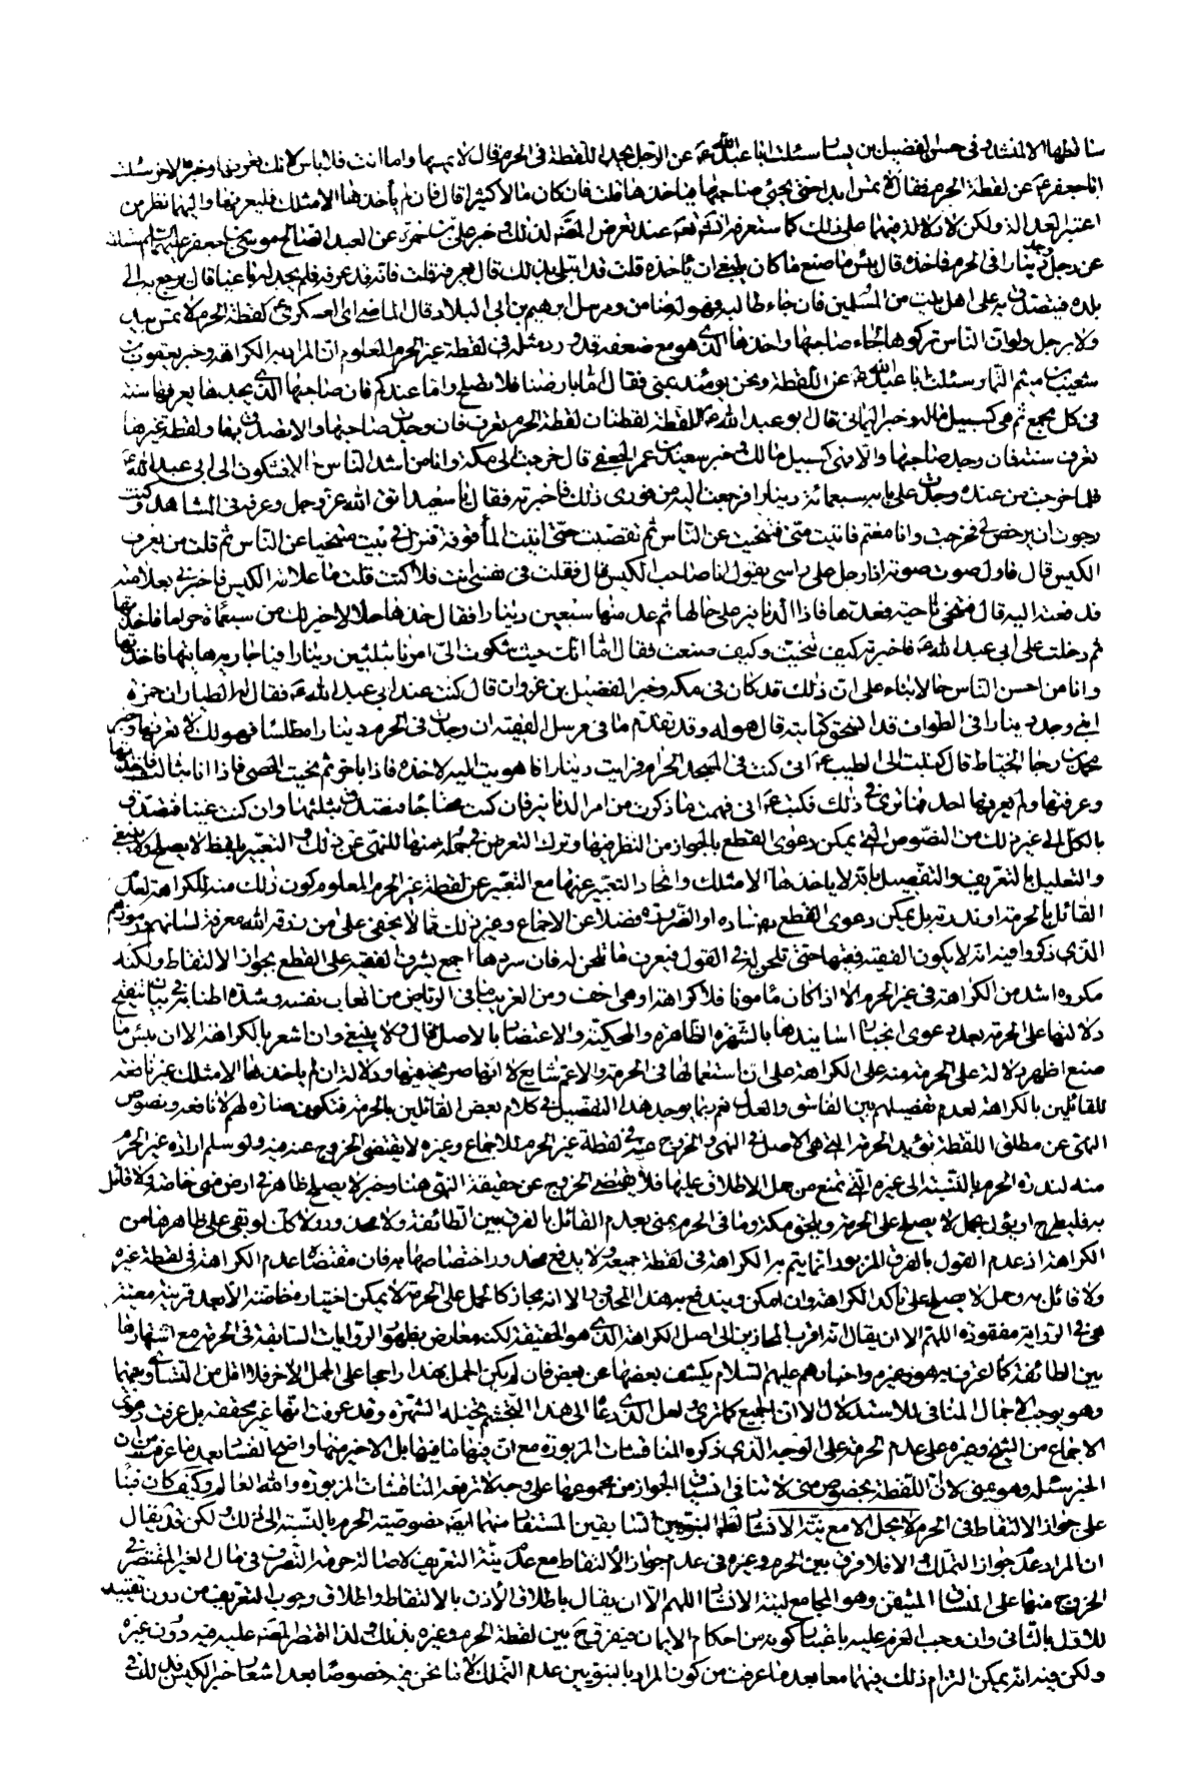 ساقطها الا لمنشد و فى حسن الفضيل بن يسار سئلت ابا عبد الله عن الرجل يجد اللقطة فى الحرم قال لا يمسها واما انت فلا باس لانك تعرفها وخبره الاخر سئلت
ابا جعفر ع عن لقطة الحرم فقال لا تمس ابدا حتى يجئ صاحبها فياخذها قلت فان كان مالا كثيرا قال فان لم يأخذها الا مثلك فليعرفها
اعتبر العدالة ولكن لا دلالة فيهما على ذلك كما ستعرفه انشاء الله عند تعرض المصنف لذلك وفى خبر على بن حمزة عن العبد الصالح موسى بن جعفر عليهما السلم سئلته
عن رجل وجد دينارا فى الحرم فاخذه قال بئس ما صنع ما كان ينبغى ان ياخذه قلت قد ابتلى بذلك قال يعرفه قلت فانه قد عرفه فلم يجد له باغيا قال يرجع به الى
بلده فيتصدق به على اهل بيت من المسلمين فان جاء طالبه فهو له ضامن ومرسل ابرهيم بن ابى البلاد قال الماضى اى العسكرى ع لقطة الحرم لا تمس بيد
ولا برجل ولو ان الناس تركوها لجاء صاحبها واخذها الذى هو مع ضعفه قد ورد مثله فى لقطة غير الحرم المعلوم ان المراد به الكراهة وخبر يعقوب بن
شعيب بن ميثم التمار سئلت ابا عبد الله ع عن اللقطة ونحن يومئذ بمنى فقال اما بارضنا هذه فلا يصلح واما عندكم فان صاحبها الذى يجدها يعرفها سنة
فى كل مجمع ثم هى كسبيل ماله وخبر اليمانى قال ابو عبد الله ع اللقطة لقطتان لقطة الحرم تعرف سنة فان وجدت صاحبها والا تصدقت بها ولقطة غيرها
تعرف سنة فان وجد صاحبها والا فهى كسبيل مالك وفى خبر سعيد بن عمر الجعفى قال خرجت الى مكة وانا من اشد الناس حالا فشكوت الى ابى عبد الله ع
فلما خرجت من عنده وجدت على بابه كيسا فيه سبعمائة دينار فرجعت اليه من فورى ذلك فاخبرته فقال يا سعيد اتق الله عز وجل وعرفه فى المشاهد وكنت
رجوت ان يرخص لى فخرجت وانا مغتم فاتيت منى فتنحيت عن الناس ثم تقصيت حتى اتيت المأفوفة فنزلت فى بيت متنحيا عن الناس ثم قلت من يعرف
الكيس قال فاول صوت صوته اذا رجل على راسى يقول انا صاحب الكيس قال فقلت فى نفسى انت فلا كنت قلت ما علامة الكيس فاخبرنى بعلامته
فدفعته اليه قال فتنحى ناحية فعدها فاذا الدنانير على حالها ثم عد منها سبعين دينارا فقال خذها حلالا خير لك من سبعمائة حراما فاخذتها
ثم دخلت على ابى عبد الله ع فاخبرته كيف تنحيت وكيف صنعت فقال اما انك حيث شكوت الى امرنا لك بثلثين دينارا يا جارية هاتها فاخذتها
وانا من احسن الناس حالا بناء على ان ذلك قد كان فى مكة وخبر الفضيل بن غزوان قال كنت عند ابى عبد الله ع فقال له الطيار ان حمزة
ابنى وجد دينارا فى الطواف قد انسحق كتابته قال هو له وقد تقدم ما فى مرسل الفقيه ان وجدت فى الحرم دينارا مطلسا فهو لك لا تعرفه وخبر
محمد بن رجا الخياط قال كتبت الى الطيب ع انى كنت فى المسجد الحرام فرايت دينارا فاهويت اليه لاخذه فاذا انا باخر ثم نحيت الحصى فاذا انا بثالث فاخذتها
وعرفتها ولم يعرفها احد فما ترى فى ذلك فكتب ع انى فهمت ما ذكرت من امر الدنانير فان كنت محتاجا فتصدق بثلثها وان كنت غنيا فتصدق
بالكل الى غير ذلك من النصوص التى يمكن دعوى القطع بالجواز من النظر فيها وترك التعرض فى جملة منها للنهى عن ذلك والتعبير بلفظ لا يصلح ولا ينبغى
والتعليل بالتعريف والتفصيل بانه لا ياخذها الا مثلك واتحاد التعبير عنها مع التعبير عن لقطة غير الحرم المعلوم كون ذلك منه للكراهة لعدم
القائل بالحرمة او ندرته بل يمكن دعوى القطع بفساده او الضرورة فضلا عن الاجماع وغير ذلك مما لا يخفى على من رزقه الله معرفة لسانهم ورموزهم
الذى ذكروا فيه انه لا يكون الفقيه فقيها حتى تلحن له فى القول فيعرف ما تلحن له فان سردها اجمع يشرف الفقيه على القطع بجواز الالتقاط ولكنه
مكروه اشد من الكراهة فى غير الحرم الا اذا كان مامونا فلا كراهة او هى اخف ومن الغريب ما فى الرياض من اتعاب نفسه وشدة اطنابه فى بيان تنقيح
دلالتها على الحرمة بعد دعوى انجبار اسانيدها بالشهرة الظاهرة والمحكية والاعتضاد بالاصل قال ولا ينبغى وان اشعر بالكراهة الا ان بئس ما
صنع اظهر دلالة على الحرمة منه على الكراهة على ان استعمالها فى الحرمة والاعم شايع لا انها صريحة فيها ودلالة ان لم ياخذها الا مثلك غير نافعة
للقائلين بالكراهة لعدم تفصيلهم بين الفاسق والعدل نعم ربما يوجد هذا التفصيل فى كلام بعض القائلين بالحرمة فتكون ضارة لهم لا نافعة ونصوص
النهى عن مطلق اللقطة تؤيد الحرمة التى هى الاصل فى النهى والخروج عنه فى لقطة غير الحرم للاجماع وغيره لا يقتضى الخروج عنه فيه ولو سلم ارادة غير الحرم
منه لندرة الحرم بالنسبة الى غيره التى تمنع من حمل الاطلاق عليها فلا يقتضى الخروج عن حقيقة النهى هنا وخبر لا يصلح ظاهر فى ارض منى خاصة ولا قائل
به فليطرح او يؤول بحمل لا يصلح على الحرمة ويلحق مكة وما فى الحرم بمنى بعدم القائل بالفرق بين الطائفة ولا محذور ولا كك لو بقى على ظاهرها من
الكراهة اذ عدم القول بالفرق المزبور انما يتم به الكراهة فى لقطة جميعه ولا يدفع محذور اختصاصها به فان مقتضاه عدم الكراهة فى لقطة غيره
ولا قائل به وحمل لا يصلح على تاكد الكراهة وان امكن ويندفع به هذا المحذور الا انه مجاز كالحمل على الحرمة لا يمكن اختياره خاصة الا بعد قرينة معينة
هى فى الرواية مفقودة اللهم الا ان يقال انه اقرب المجازين الى اصل الكراهة الذى هو الحقيقة لكنه معارض بظهور الروايات السابقة فى الحرمة مع اشتهارها
بين الطائفة كما اعترف به هو وغيره واخبارهم عليهم السلام يكشف بعضها عن بعض فان لم يكن الحمل بهذا راجحا على الحمل الاخر فلا اقل من التساوى بينهما
وهو يوجب الاجمال المنافى للاستدلال الا ان الجميع كما ترى ولعل الذى دعا الى هذا التجشم تخيله الشهرة وقد عرفت انها غير محققة بل عرفت دعوى
الاجماع من الشيخ وغيره على عدم الحرمة على الوجه الذى ذكره المناقشات المزبورة مع ان فيها ما فيها بل الاخير منها واضح الفساد بعد ما عرفت من ان
الخبر سئله وهو بمنى لا ان اللقطة بخصوص منى لا تنافى انسباق الجواز من مجموعها على وجه لا ترفعه المناقشات المزبورة والله العالم وكيف كان فبنا
على جواز الالتقاط فى الحرم لا يحل الا مع نية الانشاد لظهور النبويين اللذين يقيد المستفاد منهما ايضا خصوصية الحرم بالنسبة الى ذلك لكن قد يقال
ان المراد عدم جواز التملك والا فلا فرق بين الحرم وغيره فى عدم جواز الالتقاط مع عدم نية التعريف لاصالة حرمة التصرف فى مال الغير المقتصر فى
الخروج منها على المنساق المتيقن وهو المجامع لنية الانشاد اللهم الا ان يقال باطلاق الاذن بالالتقاط واطلاق وجوب التعريف من دون تقييد
للاول بالثانى وان وجب العزم عليه باعتبار كونه من احكام الايمان فيفرق ح بين لقطة الحرم وغيره بذلك ولذا اقتصر المصنف عليه فيه دون غيره
ولكن فيه انه يمكن التزام ذلك فيهما معا بعد ما عرفت من كون المراد بالنبويين عدم التملك لما نحن فيه خصوصا بعد اشعار خبر الكيس بذلك